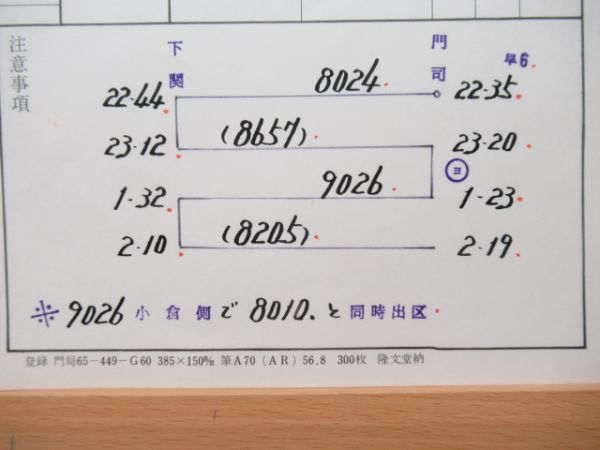 注意事項
下関 門司 早6.
8024
22-44 22-35
(8657)
23-12 23-20
ヨ
9026
1-32 1-23
(8205)
2-10 2-19
※9026小倉側で8010.と同時出区
登録 門局65-449-G60 385×150㎜ 筆A70(AR)56.8 300枚 隆文堂納